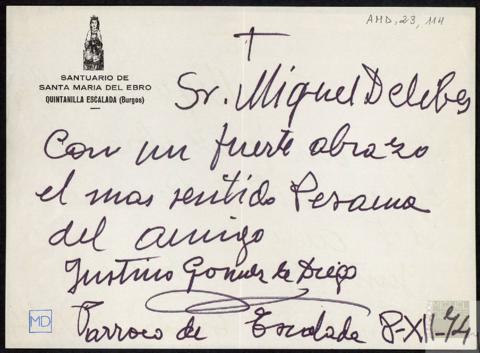 AMD, 23, 114
SANTUARIO DE
SANTA MARIA DEL EBRO
QUINTANILLA ESCALADA (Burgos)
Sr. Miguel Delibes
Con un fuerte abrazo
el mas sentido Pesame
del amigo
Justino Gomez de Diego
Parroco de Escalada 8-XII-74
MD